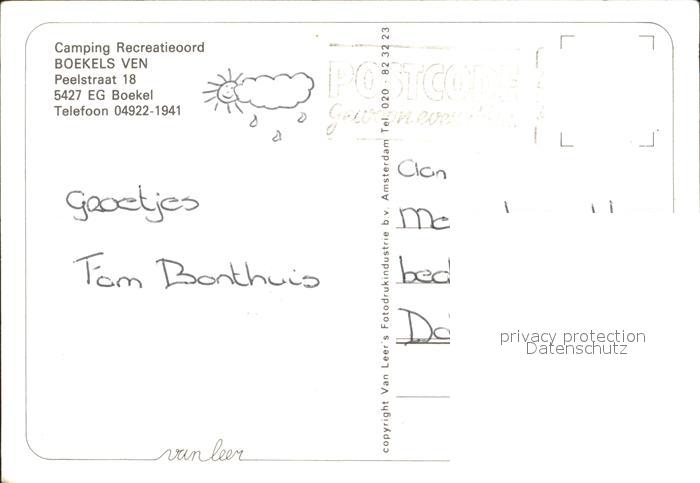 Camping Recreatieoord
BOEKELS VEN
Peelstraat 18
5427 EG Boekel
Telefoon 04922-1941
POSTCODE
Gewoon
Groetjes
Fam Bonthuis
van leer
copyright Van Leer's Fotodrukindustrie b.v. Amsterdam Tel. 020 - 82 32 23
privacy protection
Datenschutz